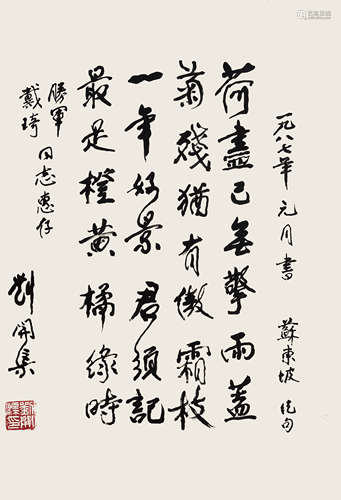 一九八七年 元月書 蘇東坡 絕句
荷盡已無擎雨蓋
菊殘猶有傲霜枝
一年好景君須記
最是橙黃橘綠時
勝軍
戴琦
同志惠存
劉開集